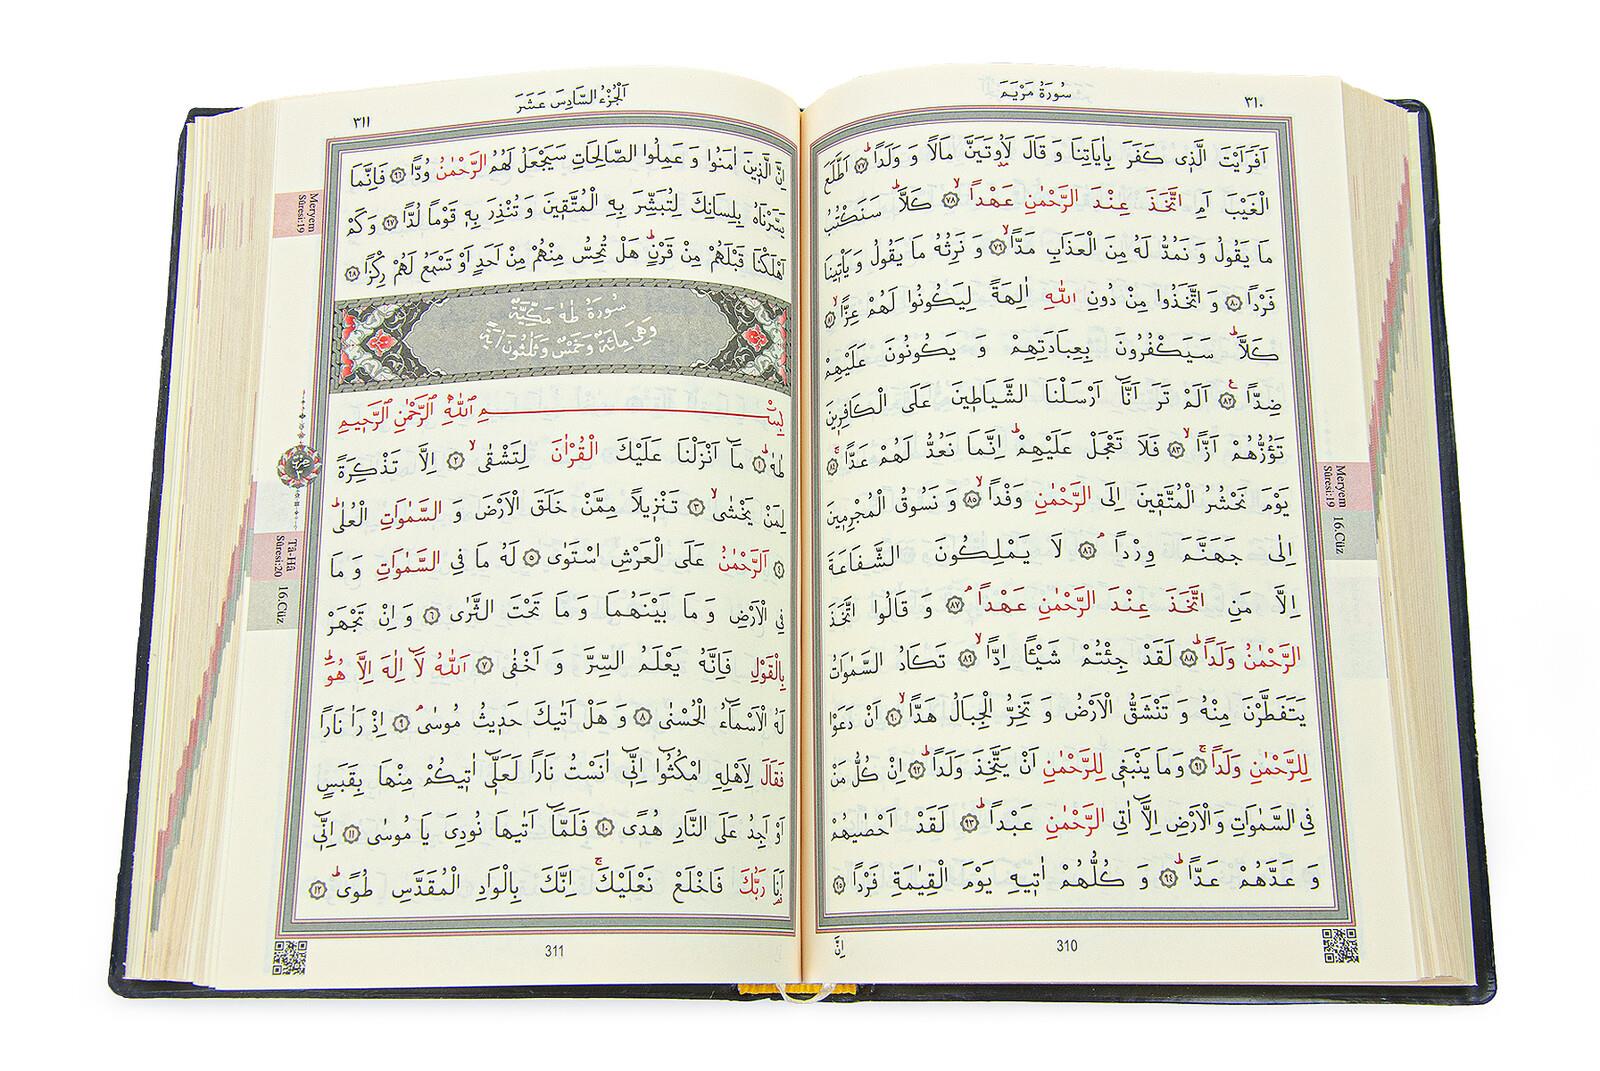 سُورَةُ مَرْيَمَ
٣١٠
اَفَرَاَيْتَ الَّذٖى كَفَرَ بِاٰيَاتِنَا وَ قَالَ لَاُوتَيَنَّ مَالًا وَ وَلَداًؕ ﴿٧٧﴾ اَطَّلَعَ
الْغَيْبَ اَمِ اتَّخَذَ عِنْدَ الرَّحْمٰنِ عَهْداًۙ ﴿٧٨﴾ كَلَّاؕ سَنَكْتُبُ
مَا يَقُولُ وَ نَمُدُّ لَهُ مِنَ الْعَذَابِ مَدّاًۙ ﴿٧٩﴾ وَ نَرِثُهُ مَا يَقُولُ وَ يَأْتٖينَا
فَرْداً ﴿٨٠﴾ وَ اتَّخَذُوا مِنْ دُونِ اللّٰهِ اٰلِهَةً لِيَكُونُوا لَهُمْ عِزّاًۙ ﴿٨١﴾
كَلَّاؕ سَيَكْفُرُونَ بِعِبَادَتِهِمْ وَ يَكُونُونَ عَلَيْهِمْ
ضِدّاًࣖ ﴿٨٢﴾ اَلَمْ تَرَ اَنَّٓا اَرْسَلْنَا الشَّيَاطٖينَ عَلَى الْكَافِرٖينَ
تَؤُزُّهُمْ اَزّاًۙ ﴿٨٣﴾ فَلَا تَعْجَلْ عَلَيْهِمْؕ اِنَّمَا نَعُدُّ لَهُمْ عَدّاًۚ ﴿٨٤﴾
يَوْمَ نَحْشُرُ الْمُتَّقٖينَ اِلَى الرَّحْمٰنِ وَفْداًۙ ﴿٨٥﴾ وَ نَسُوقُ الْمُجْرِمٖينَ
اِلٰى جَهَنَّمَ وِرْداًۘ ﴿٨٦﴾ لَا يَمْلِكُونَ الشَّفَاعَةَ
اِلَّا مَنِ اتَّخَذَ عِنْدَ الرَّحْمٰنِ عَهْداًۘ ﴿٨٧﴾ وَ قَالُوا اتَّخَذَ
الرَّحْمٰنُ وَلَداًؕ ﴿٨٨﴾ لَقَدْ جِئْتُمْ شَيْـًٔا اِدّاًۙ ﴿٨٩﴾ تَكَادُ السَّمٰوَاتُ
يَتَفَطَّرْنَ مِنْهُ وَ تَنْشَقُّ الْاَرْضُ وَ تَخِرُّ الْجِبَالُ هَدّاًۙ ﴿٩٠﴾ اَنْ دَعَوْا
لِلرَّحْمٰنِ وَلَداًۚ ﴿٩١﴾ وَ مَا يَنْبَغٖى لِلرَّحْمٰنِ اَنْ يَتَّخِذَ وَلَداًؕ ﴿٩٢﴾ اِنْ كُلُّ مَنْ
فِى السَّمٰوَاتِ وَ الْاَرْضِ اِلَّٓا اٰتِى الرَّحْمٰنِ عَبْداًؕ ﴿٩٣﴾ لَقَدْ اَحْصٰيهُمْ
وَ عَدَّهُمْ عَدّاًؕ ﴿٩٤﴾ وَ كُلُّهُمْ اٰتٖيهِ يَوْمَ الْقِيٰمَةِ فَرْداً ﴿٩٥﴾
Meryem
Sûresi:19
16.Cüz
310
اِنَّ
اَلْجُزْءُ السَّادِسَ عَشَرَ
٣١١
اِنَّ الَّذٖينَ اٰمَنُوا وَ عَمِلُوا الصَّالِحَاتِ سَيَجْعَلُ لَهُمُ الرَّحْمٰنُ وُدّاً ﴿٩٦﴾ فَاِنَّمَا
يَسَّرْنَاهُ بِلِسَانِكَ لِتُبَشِّرَ بِهِ الْمُتَّقٖينَ وَ تُنْذِرَ بِهٖ قَوْماً لُدّاً ﴿٩٧﴾ وَ كَمْ
اَهْلَكْنَا قَبْلَهُمْ مِنْ قَرْنٍؕ هَلْ تُحِسُّ مِنْهُمْ مِنْ اَحَدٍ اَوْ تَسْمَعُ لَهُمْ رِكْزاً ﴿٩٨﴾
سُورَةُ طٰهٰ مَكِّيَّةٌ
وَهِىَ مِائَةٌ وَخَمْسٌ وَثَلٰثُونَ اٰيَةً
بِسْمِ اللّٰهِ الرَّحْمٰنِ الرَّحٖيمِ
طٰهٰؕ ﴿١﴾ مَٓا اَنْزَلْنَا عَلَيْكَ الْقُرْاٰنَ لِتَشْقٰىۙ ﴿٢﴾ اِلَّا تَذْكِرَةً
لِمَنْ يَخْشٰىۙ ﴿٣﴾ تَنْزٖيلاً مِمَّنْ خَلَقَ الْاَرْضَ وَ السَّمٰوَاتِ الْعُلٰىؕ
﴿٤﴾ اَلرَّحْمٰنُ عَلَى الْعَرْشِ اسْتَوٰى ﴿٥﴾ لَهُ مَا فِى السَّمٰوَاتِ وَ مَا
فِى الْاَرْضِ وَ مَا بَيْنَهُمَا وَ مَا تَحْتَ الثَّرٰى ﴿٦﴾ وَ اِنْ تَجْهَرْ
بِالْقَوْلِ فَاِنَّهُ يَعْلَمُ السِّرَّ وَ اَخْفٰى ﴿٧﴾ اَللّٰهُ لَٓا اِلٰهَ اِلَّا هُوَؕ
لَهُ الْاَسْمَٓاءُ الْحُسْنٰى ﴿٨﴾ وَ هَلْ اَتٰيكَ حَدٖيثُ مُوسٰىۘ ﴿٩﴾ اِذْ رَاٰ نَاراً
فَقَالَ لِاَهْلِهِ امْكُثُٓوا اِنّٖٓى اٰنَسْتُ نَاراً لَعَلّٖٓى اٰتٖيكُمْ مِنْهَا بِقَبَسٍ
اَوْ اَجِدُ عَلَى النَّارِ هُدًى ﴿١٠﴾ فَلَمَّٓا اَتٰيهَا نُودِىَ يَا مُوسٰى ﴿١١﴾ اِنّٖٓى
اَنَا رَبُّكَ فَاخْلَعْ نَعْلَيْكَۚ اِنَّكَ بِالْوَادِ الْمُقَدَّسِ طُوًىؕ ﴿١٢﴾
Meryem
Sûresi:19
Tâ-Hâ
Sûresi:20
16.Cüz
311